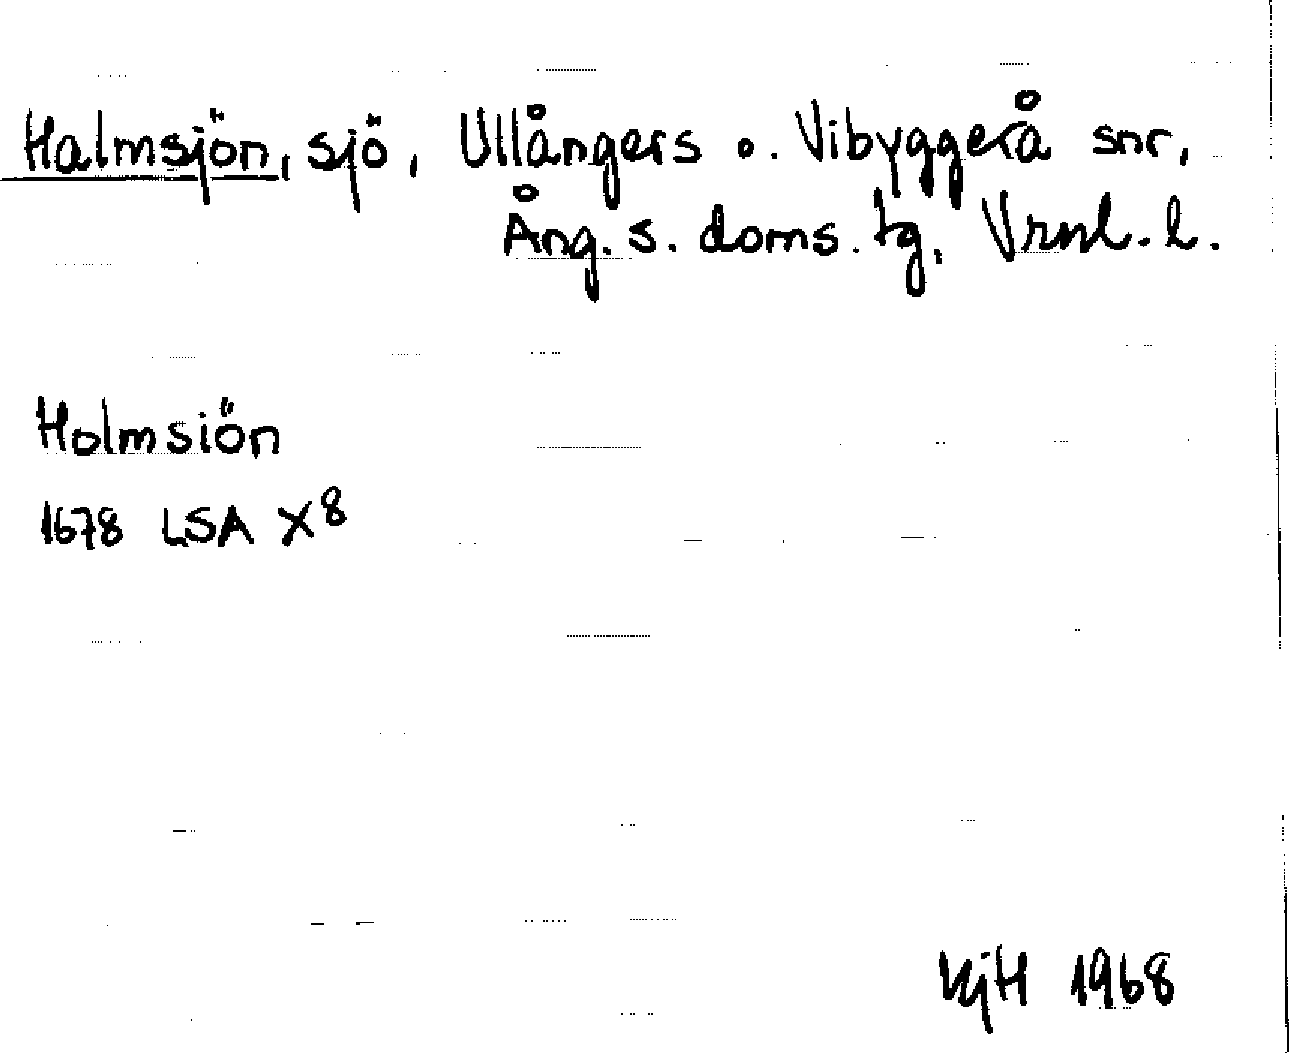 Halmsjön, sjö, Ullångers o. Vibyggerå snr,
Ång. s. doms. tg, Vrnl. l.
Holmsiön
1678 LSA X8
KjH 1968